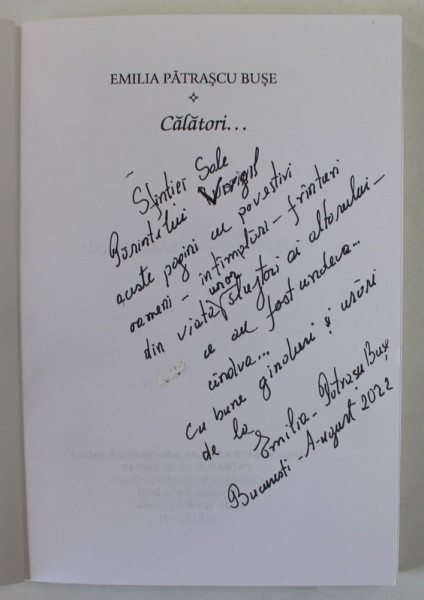 EMILIA PĂTRAȘCU BUȘE
Călători...
Sfinției Sale
Părintelui Virgil
aceste pagini cu povestiri
oameni - întîmplări - frînturi
din viața unor slujitori ai altarului -
ce au fost undeva...
cîndva...
Cu bune gînduri și urări
de la Emilia - Pătrașcu Bușe
București - August 2022